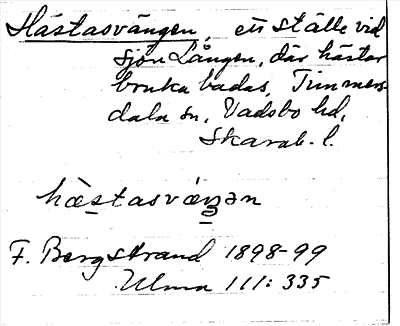 Hästasvängen, ett ställe vid
sjön Lången, där hästar
bruka badas, Timmers-
dala sn, Vadsbo hd,
Skarab. l.
hæ̀stasvæŋən
F. Bergstrand 1898-99
Ulma 111:335